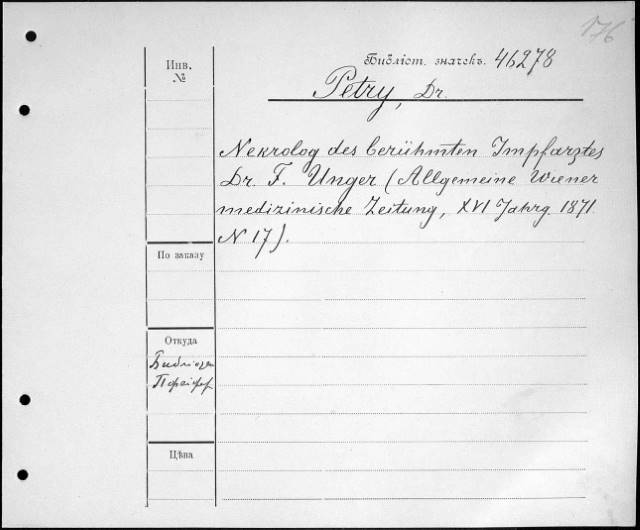 176
Инв.
№
Библіот. значекъ. 46278
Petry, Dr.
Nekrolog des berühmten Impfarztes
Dr. F. Unger (Allgemeine Wiener
medizinische Zeitung, XVI Jahrg. 1871.
N 17).
По заказу
Откуда
Библіотек
Пфейфер
Цѣна